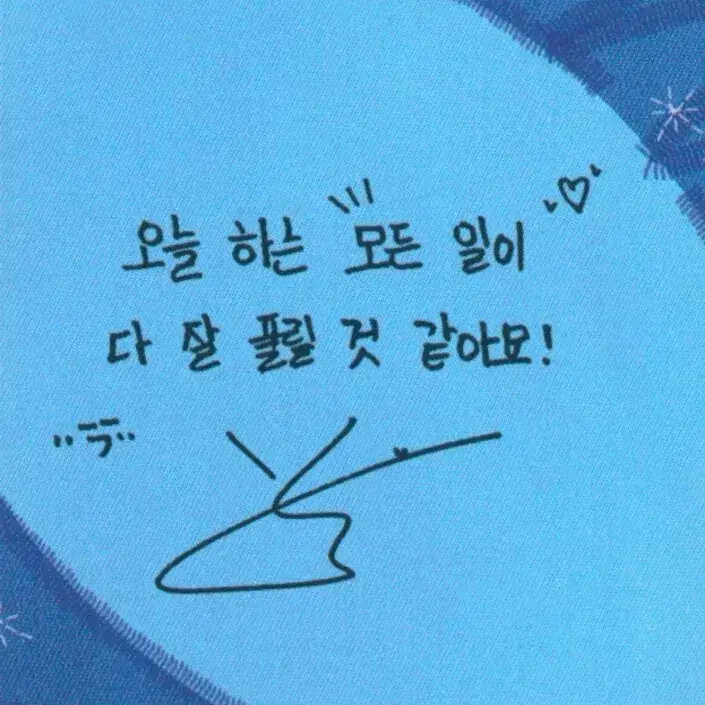 오늘 하는 모든 일이
다 잘 풀릴 것 같아요!